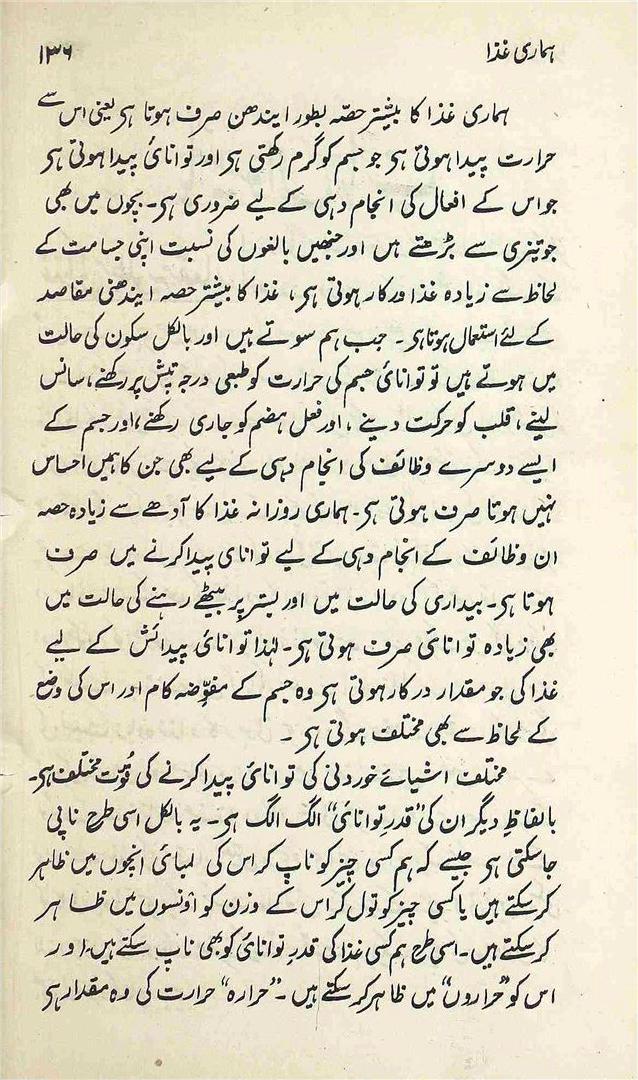 ہماری غذا
۱۳۶
ہماری غذا کا بیشتر حصّہ بطور ایندھن صرف ہوتا ہی یعنی اس سے
حرارت پیدا ہوتی ہی جو جسم کو گرم رکھتی ہی اور توانائ پیدا ہوتی ہی
جو اس کے افعال کی انجام دہی کے لیے ضروری ہی۔ بچوں میں بھی
جو تیزی سے بڑھتے ہیں اور جنھیں بالغوں کی نسبت اپنی جسامت کے
لحاظ سے زیادہ غذا درکار ہوتی ہی، غذا کا بیشتر حصہ ایندھنی مقاصد
کے لئے استعمال ہوتا ہی۔ جب ہم سوتے ہیں اور بالکل سکون کی حالت
میں ہوتے ہیں تو توانائ جسم کی حرارت کو طبعی درجہ تپش پر رکھنے، سانس
لینے، قلب کو حرکت دینے، اور فعل ہضم کو جاری رکھنے، اور جسم کے
ایسے دوسرے وظائف کی انجام دہی کے لیے بھی جن کا ہمیں احساس
نہیں ہوتا صرف ہوتی ہی۔ ہماری روزانہ غذا کا آدھے سے زیادہ حصہ
ان وظائف کے انجام دہی کے لیے توانای پیدا کرنے میں صرف
ہوتا ہی۔ بیداری کی حالت میں اور بستر پر بیٹھے رہنے کی حالت میں
بھی زیادہ توانائ صرف ہوتی ہی۔ لہٰذا توانائ پیدائش کے لیے
غذا کی جو مقدار درکار ہوتی ہی وہ جسم کے مفوّضہ کام اور اس کی وضع
کے لحاظ سے بھی مختلف ہوتی ہی۔
مختلف اشیائے خوردنی کی توانائ پیدا کرنے کی قوّت مختلف ہی۔
بالفاظِ دیگر ان کی "قدرِ توانائ" الگ الگ ہی۔ یہ بالکل اسی طرح ناپی
جاسکتی ہی جیسے کہ ہم کسی چیز کو ناپ کر اس کی لمبائ انچوں میں ظاہر
کرسکتے ہیں یا کسی چیز کو تول کر اس کے وزن کو اونسوں میں ظاہر
کرسکتے ہیں۔ اسی طرح ہم کسی غذا کی قدرِ توانائ کو بھی ناپ سکتے ہیں اور
اس کو "حراروں" میں ظاہر کرسکتے ہیں۔ "حرارہ" حرارت کی وہ مقدار ہی